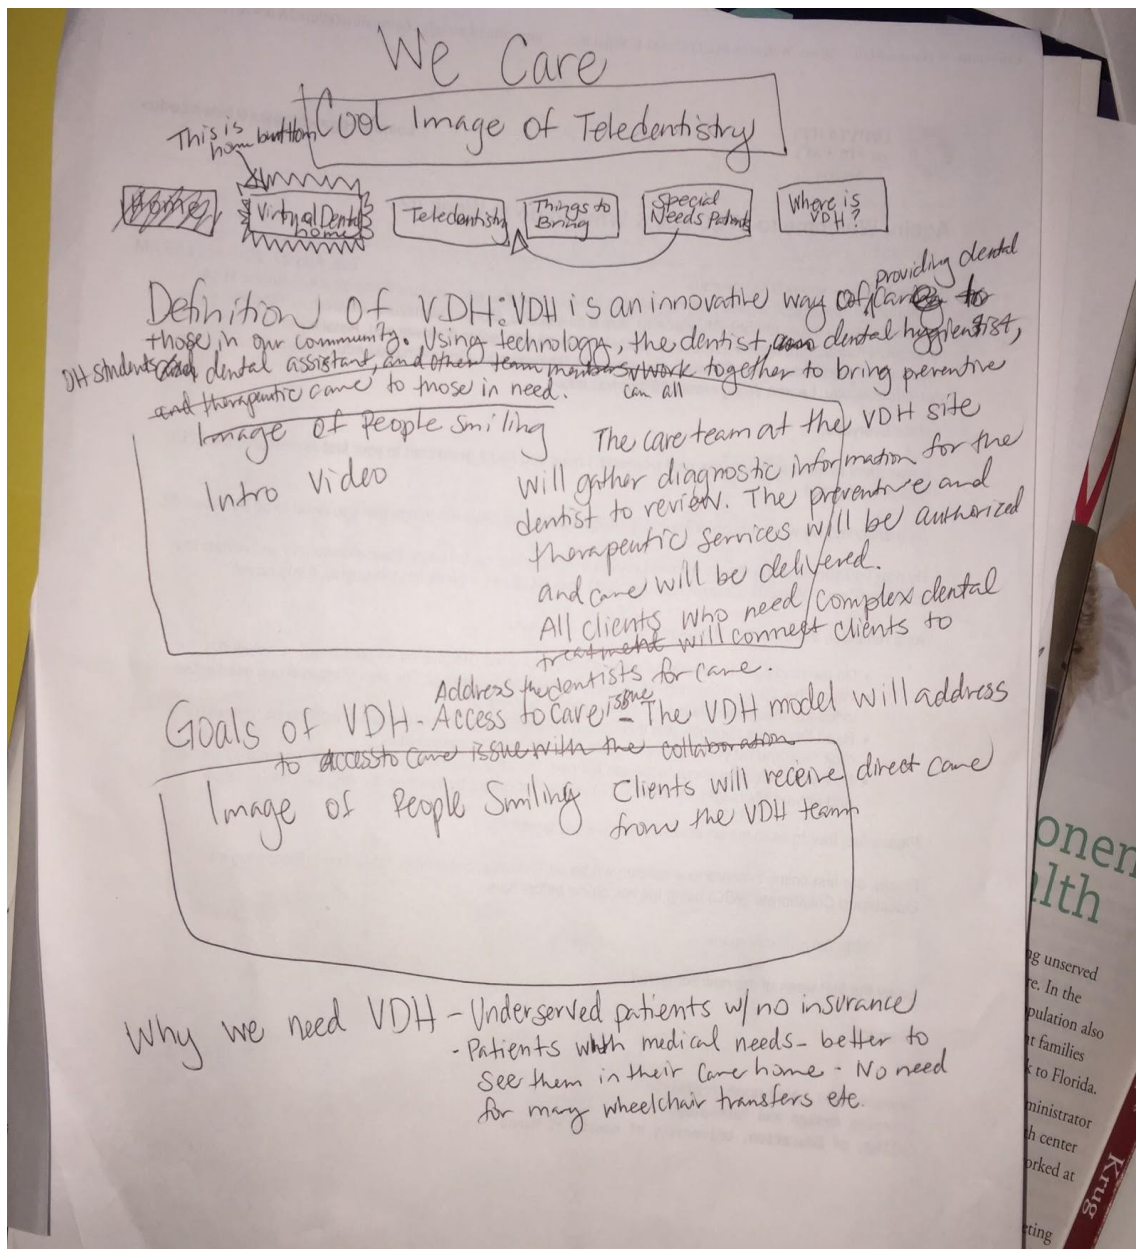 We Care
Cool Image of Teledentistry
This is
home button
Home
Virtual Dental
home
Teledentistry
Things to
Bring
Special
Needs Patients
Where is
VDH?
providing dental
Definition of VDH: VDH is an innovative way of care to
those in our community. Using technology, the dentist, dental hygienist,
DH students and dental assistant, and other team members work together to bring preventive
can all
and therapeutic care to those in need.
Image of People Smiling
Intro Video
The care team at the VDH site
will gather diagnostic information for the
dentist to review. The preventive and
therapeutic services will be authorized
and care will be delivered.
All clients who need complex dental
treatment will connect clients to
dentists for care.
Address the
issue
Goals of VDH - Access to care - The VDH model will address
to access to care issue with the collaboration
Image of People Smiling
Clients will receive direct care
from the VDH team
Why we need VDH - Underserved patients w/ no insurance
- Patients with medical needs - better to
see them in their care home - No need
for may wheelchair transfers etc.
onen
lth
ng unserved
re. In the
pulation also
nt families
k to Florida.
ministrator
th center
orked at
eting
Krug